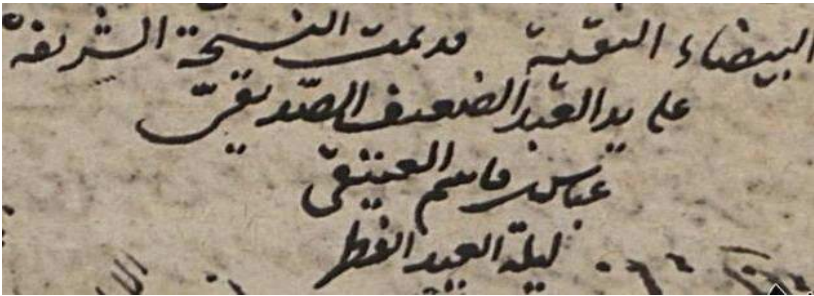 البيضاء النقية قد تمت النسخة الشريفة
على يد العبد الضعيف الصديقيّ
عباس قاسم العتيقى
ليلة العيد الفطر